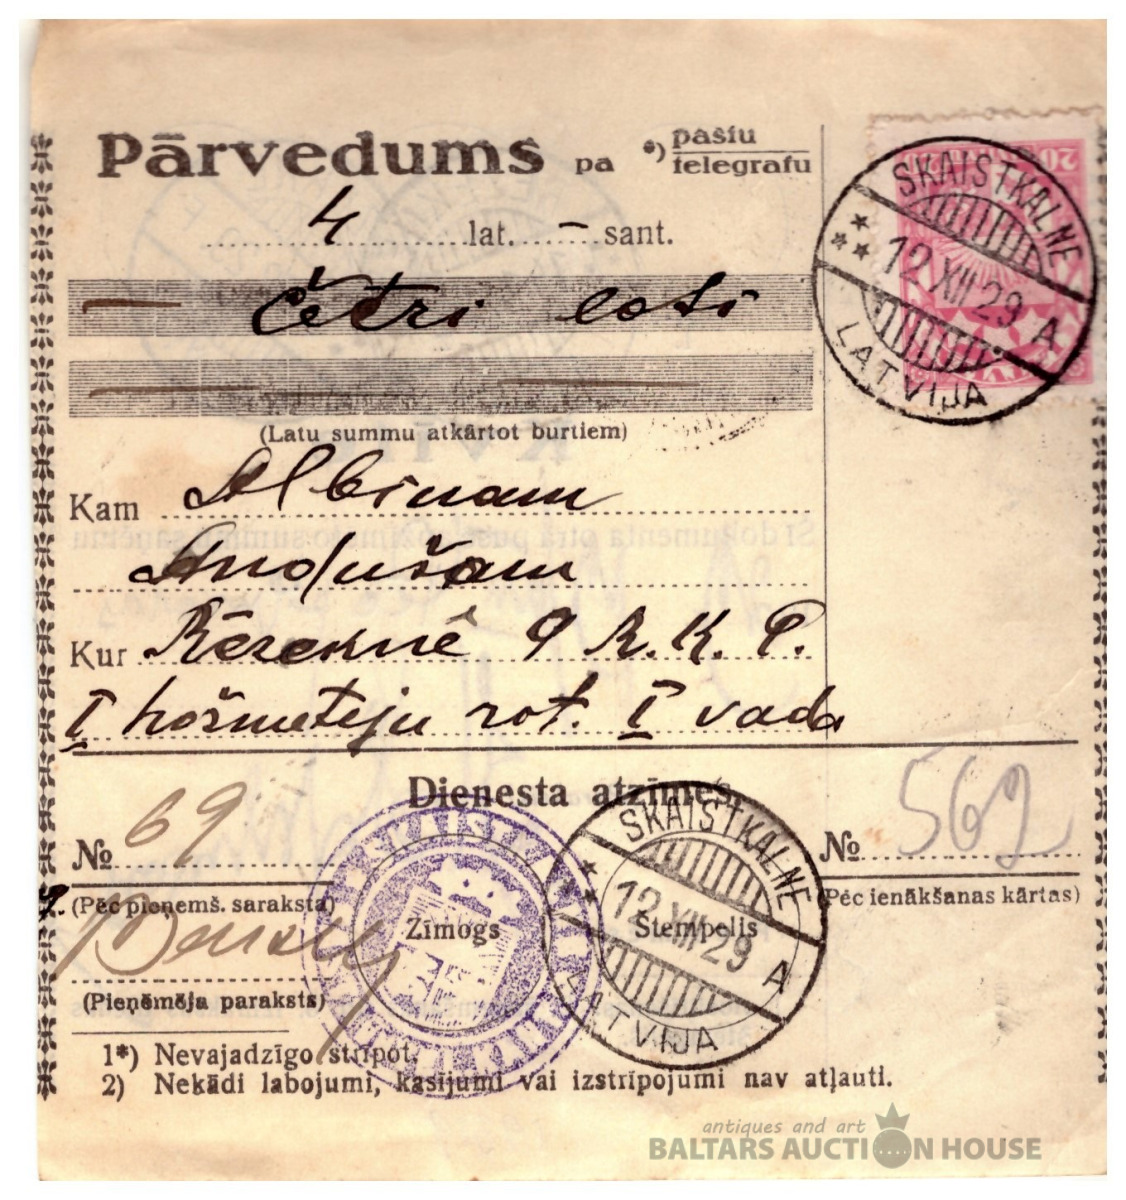 Pārvedums pa *) pastu
telegrafu
4 lat. – sant.
četri lati
(Latu summu atkārtot burtiem)
Kam Albinam
Andušam
Kur Rēzeknē 9 R. K. P.
I ložmetēju rot. I vada
Dienesta atzīmes.
№ 69
№ 562
(Pēc pieņemš. saraksta)
(Pēc ienākšanas kārtas)
Zīmogs
Stempelis
(Pieņēmēja paraksts)
1*) Nevajadzīgo strīpot.
2) Nekādi labojumi, kasījumi vai izstrīpojumi nav atļauti.
SKAISTKALNE
12 XII 29 A
LATVIJA
SKAISTKALNE
12 XII 29 A
LATVIJA
20
antiques and art
BALTARS AUCTION HOUSE